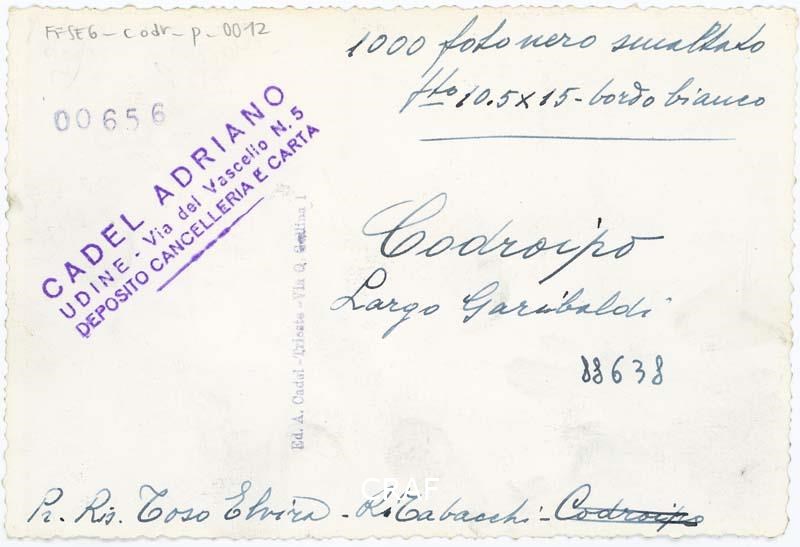 FFSEG-Codr-p-0012
1000 foto nero smaltato
fto 10.5x15 - bordo bianco
00656
CADEL ADRIANO
UDINE - Via del Vascello N. 5
DEPOSITO CANCELLERIA E CARTA
Codroipo
Largo Garibaldi
88638
Ed. A. Cadel - Trieste - Via Q. 1
CRAF
Pr. Ris. Toso Elvira - Tabacchi - Codroipo